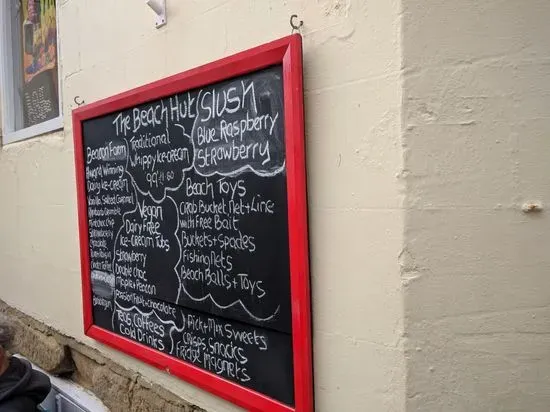 The Beach Hut
Slush
Blue Raspberry
Strawberry
Traditional
Whippy Ice-cream
99
Beacon Farm
Award Winning
Dairy Ice-cream
Vanilla Salted Caramel
Rhubarb Crumble
Mint choc chip
Strawberry
Chocolate
Vegan
Dairy Free
Ice-cream Tubs
Strawberry
Double choc
Maple + Pecan
Passion Fruit + chocolate
Beach Toys
Crab Bucket Net + Line
with Free Bait
Buckets + Spades
Fishing nets
Beach Balls + Toys
Teas Coffees
Cold Drinks
Pick + Mix Sweets
Crisps Snacks
Fridge Magnets